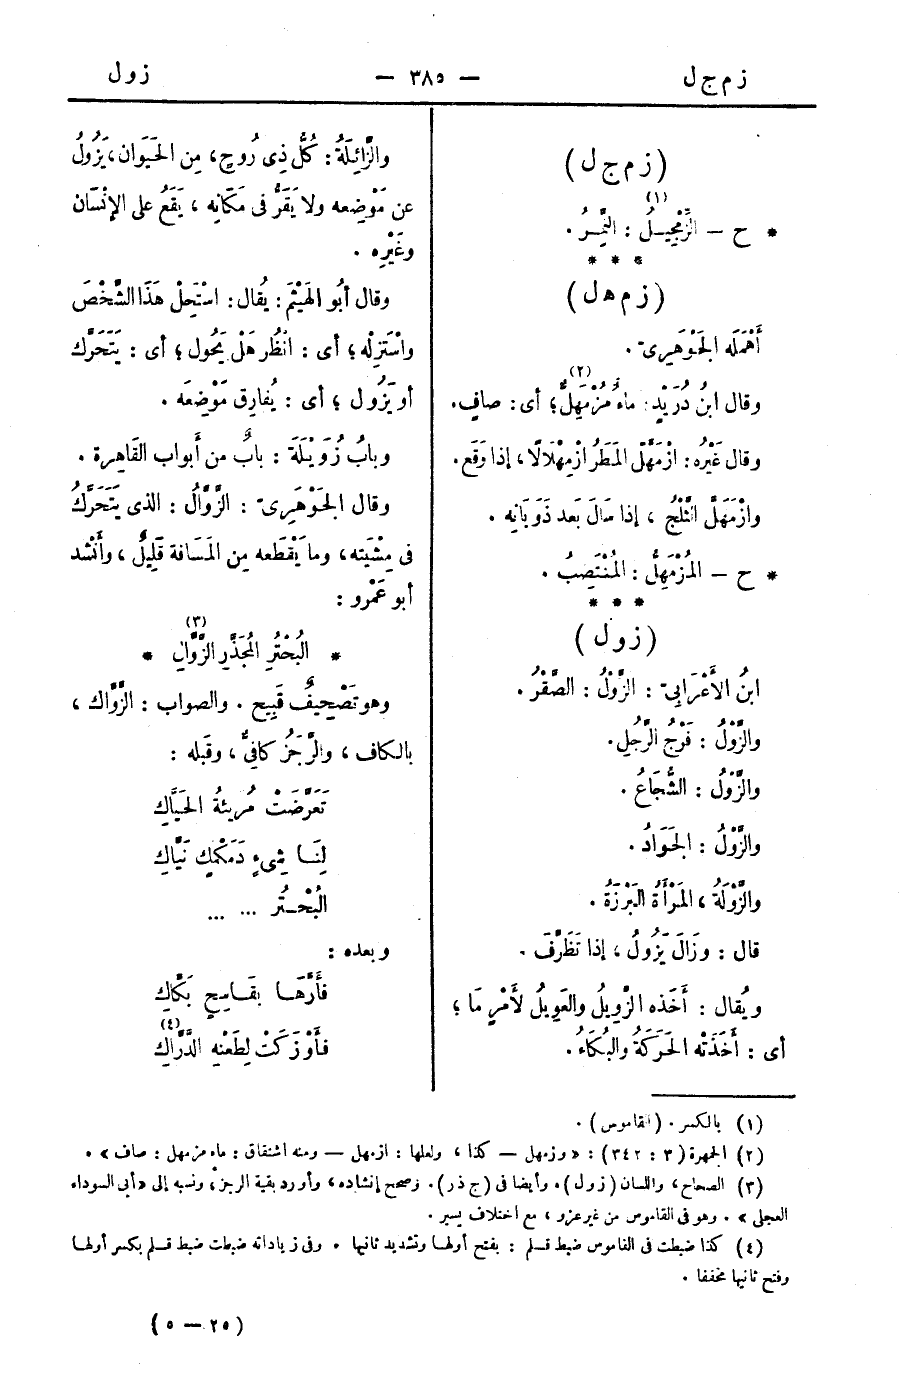 زم‌ج‌ل — ٣٨٥ — زول
(زم‌ج‌ل)
* ح – الزِّمْجِيلُ (١) : النَّمِرُ .
* * *
(زم‌ه‌ل)
أَهْمَله الجَوْهَرِىّ .
وقال ابنُ دُرَيْدٍ: ماءٌ مُزْمَهِلٌّ (٢)؛ أى: صافٍ.
وقال غَيْرُه: ازْمَهَلَّ المَطَرُ ازْمِهْلَالًا، إذا وَقَع.
وازْمَهَلَّ الثَّلْجُ ، إذا سَالَ بَعد ذَوَبَانِه .
* ح – المُزْمَهِلُّ : المُنْتَصِبُ .
* * *
(زول)
ابنُ الأَعْرَابِىّ : الزَّوْلُ : الصَّقْرُ .
والزَّوْلُ : فَرْجُ الرَّجُلِ.
والزَّوْلُ : الشُّجَاعُ .
والزَّوْلُ : الجَوَادُ .
والزَّوْلَةُ ، المَرْأَةُ البَرْزَةُ .
قال : وزَالَ يَزُولُ ، إذا تَظَرَّفَ .
ويُقال : أَخَذه الزَّوِيلُ والعَوِيلُ لأَمْرٍ مَا ؛
أى : أَخَذَتْه الحَرَكَةُ والبُكَاءُ .
والزَّائِلَةُ : كُلُّ ذِى رُوحٍ، مِن الحَيَوان، يَزُولُ
عن مَوْضِعه ولا يَقَرُّ فى مَكَانِه ، يَقَعُ على الإنْسَان
وغَيْرِه .
وقال أبُو الهَيْثَم : يُقال : اسْتَحِلْ هَذَا الشَّخْصَ
واسْتَزِلْه ؛ أى : انْظُر هَلْ يَحُول ؛ أى : يَتَحَرَّك
أو يَزُول ؛ أى : يُفارِق مَوْضِعَه .
وبابُ زُوَيْلَةَ : بابٌ من أَبواب القَاهِرة .
وقال الجَوْهَرِىّ : الزَّوَّالُ : الذى يَتَحَرَّكُ
فى مِشْيَتِه، وما يَقْطَعه مِن المَسَافة قَلِيلٌ ، وأَنْشد
أبو عَمْرو :
* البُحْتُرِ المُجَذَّرِ الزَّوَّالِ (٣) *
وهو تَصْحِيفٌ قَبِيح . والصواب : الزَّوَّاك ،
بالكاف ، والرَّجَزُ كافِىٌّ ، وقَبله :
تَعَرَّضَتْ مُرِيئةُ الحَيَّاكِ
لِنَــا شِئٍ دَمَكْمَكٍ نَيَّاكِ
البُحْــتُرِ ... ...
وبعده :
فأَرَّهَــا بقَــاسِحٍ بَكَّاكِ
فأَوْزَكَتْ لِطَعْنِه الدَّرَّاكِ (٤)
(١) بالكسر . (القاموس) .
(٢) الجمهرة (٣ : ٣٤٢) : « وزمهل – كذا ، ولعلها : ازمهل – ومنه اشتقاق : ماء مزمهل : صاف » .
(٣) الصحاح، واللسان (زول). وأيضا فى (ج ذر). وصحح إنشاده، وأورد بقية الرجز، ونسبه إلى «أبى السوداء
العجلى » . وهو فى القاموس من غير عزو ، مع اختلاف يسير .
(٤) كذا ضبطت فى القاموس ضبط قــلم : بفتح أولهــا وتشديد ثانيها . وفى زياداته ضبطت ضبط قــلم بكسر أولهــا
وفتح ثانيها مخففا .
(٢٥ – ٥)